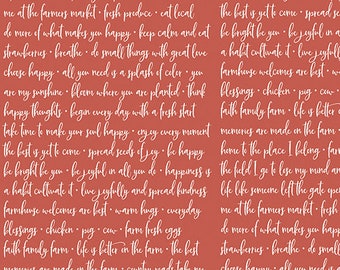 me at the farmers market • fresh produce • eat local
do more of what makes you happy • keep calm and eat
strawberries • breathe • do small things with great love
choose happy • all you need is a splash of color • you
are my sunshine • bloom where you are planted • think
happy thoughts • begin every day with a fresh start
take time to make your soul happy • enjoy every moment
the best is yet to come • spread seeds of joy • be happy
be bright be you • be joyful in all you do • happiness is
a habit cultivate it • live joyfully and spread kindness
farmhouse welcomes are best • warm hugs • everyday
blessings • chicken • pig • cow • farm fresh eggs
faith family farm • life is better on the farm • the best
memories are made on the farm • country roads take me
the best is yet to come • spread
be bright be you • be joyful in a
a habit cultivate it • live joyfully
farmhouse welcomes are best • w
blessings • chicken • pig • cow •
faith family farm • life is better
memories are made on the farm •
home to the place I belong • farm
the field I go to lose my mind an
life like someone left the gate open
me at the farmers market • fresh
do more of what makes you happy
strawberries • breathe • do small
choose happy • all you need is a